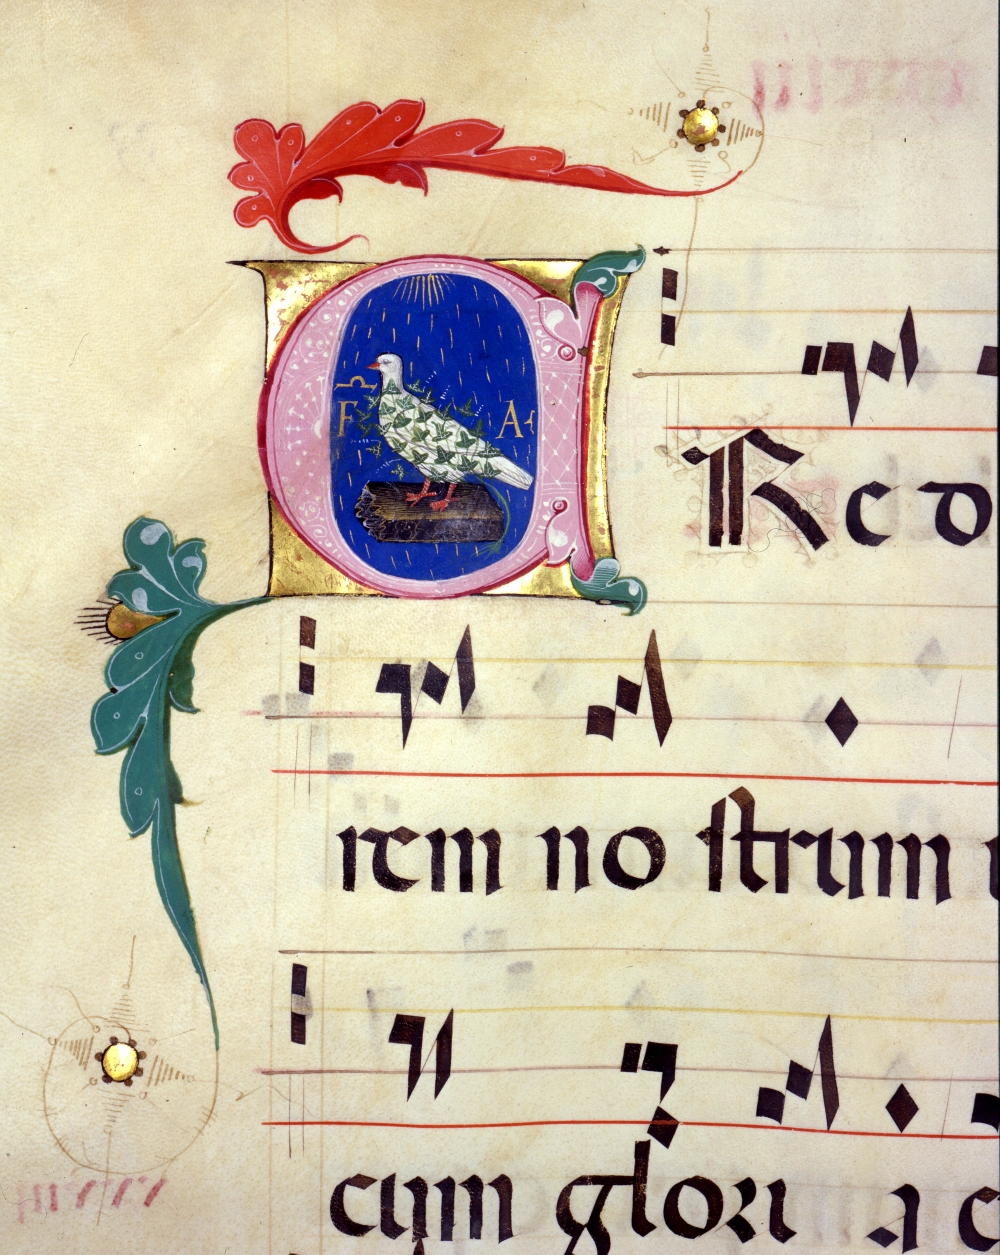 F A
C Re do
rem no strum
cum glori a c